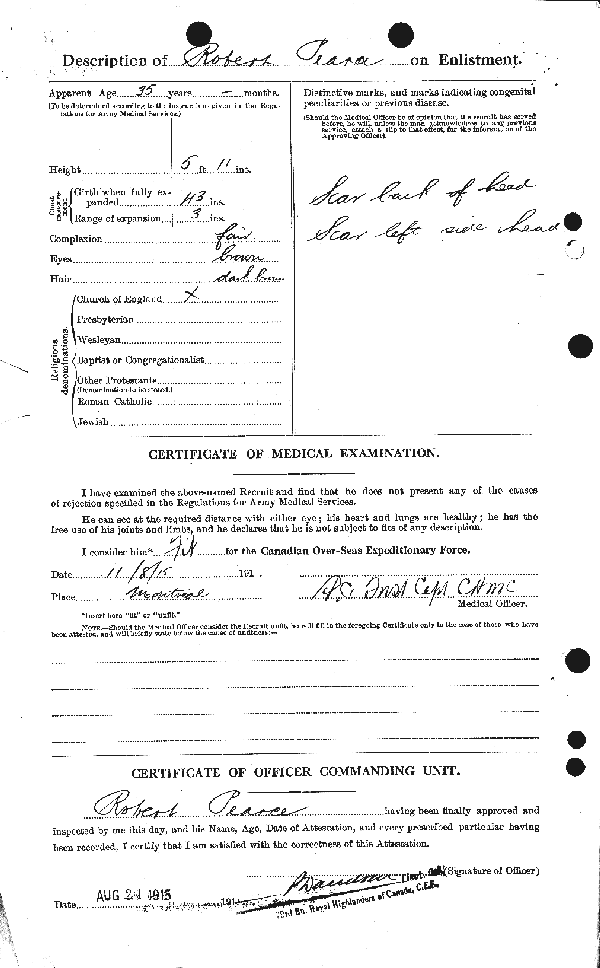 Description of Robert Pearce on Enlistment.
Apparent Age 35 years – months.
(To be determined according to the instructions given in the Regulations for Army Medical Services.)
Height 5 ft. 11 ins.
Chest measurement
Girth when fully expanded 43 ins.
Range of expansion 3 ins.
Complexion fair
Eyes brown
Hair dark brown
Religious denominations.
Church of England X
Presbyterian
Wesleyan
Baptist or Congregationalist
Other Protestants
(Denomination to be stated.)
Roman Catholic
Jewish
Distinctive marks, and marks indicating congenital
peculiarities or previous disease.
(Should the Medical Officer be of opinion that the recruit has served
before, he will, unless the man acknowledges to any previous
service, attach a slip to that effect, for the information of the
Approving Officer).
Scar back of head
Scar left side head
CERTIFICATE OF MEDICAL EXAMINATION.
I have examined the above-named Recruit and find that he does not present any of the causes
of rejection specified in the Regulations for Army Medical Services.
He can see at the required distance with either eye; his heart and lungs are healthy; he has the
free use of his joints and limbs, and he declares that he is not subject to fits of any description.
I consider him* Fit for the Canadian Over-Seas Expeditionary Force.
Date 11/8/15 191
Place Montreal
Capt CAMC
Medical Officer.
*Insert here "fit" or "unfit."
NOTE.—Should the Medical Officer consider the Recruit unfit, he will fill in the foregoing Certificate only in the case of those who have
been attested, and will briefly state below the cause of unfitness:—
CERTIFICATE OF OFFICER COMMANDING UNIT.
Robert Pearce having been finally approved and
inspected by me this day, and his Name, Age, Date of Attestation, and every prescribed particular having
been recorded, I certify that I am satisfied with the correctness of this Attestation.
(Signature of Officer)
Date AUG 24 1915 191
Royal Highlanders of Canada, C.E.F.